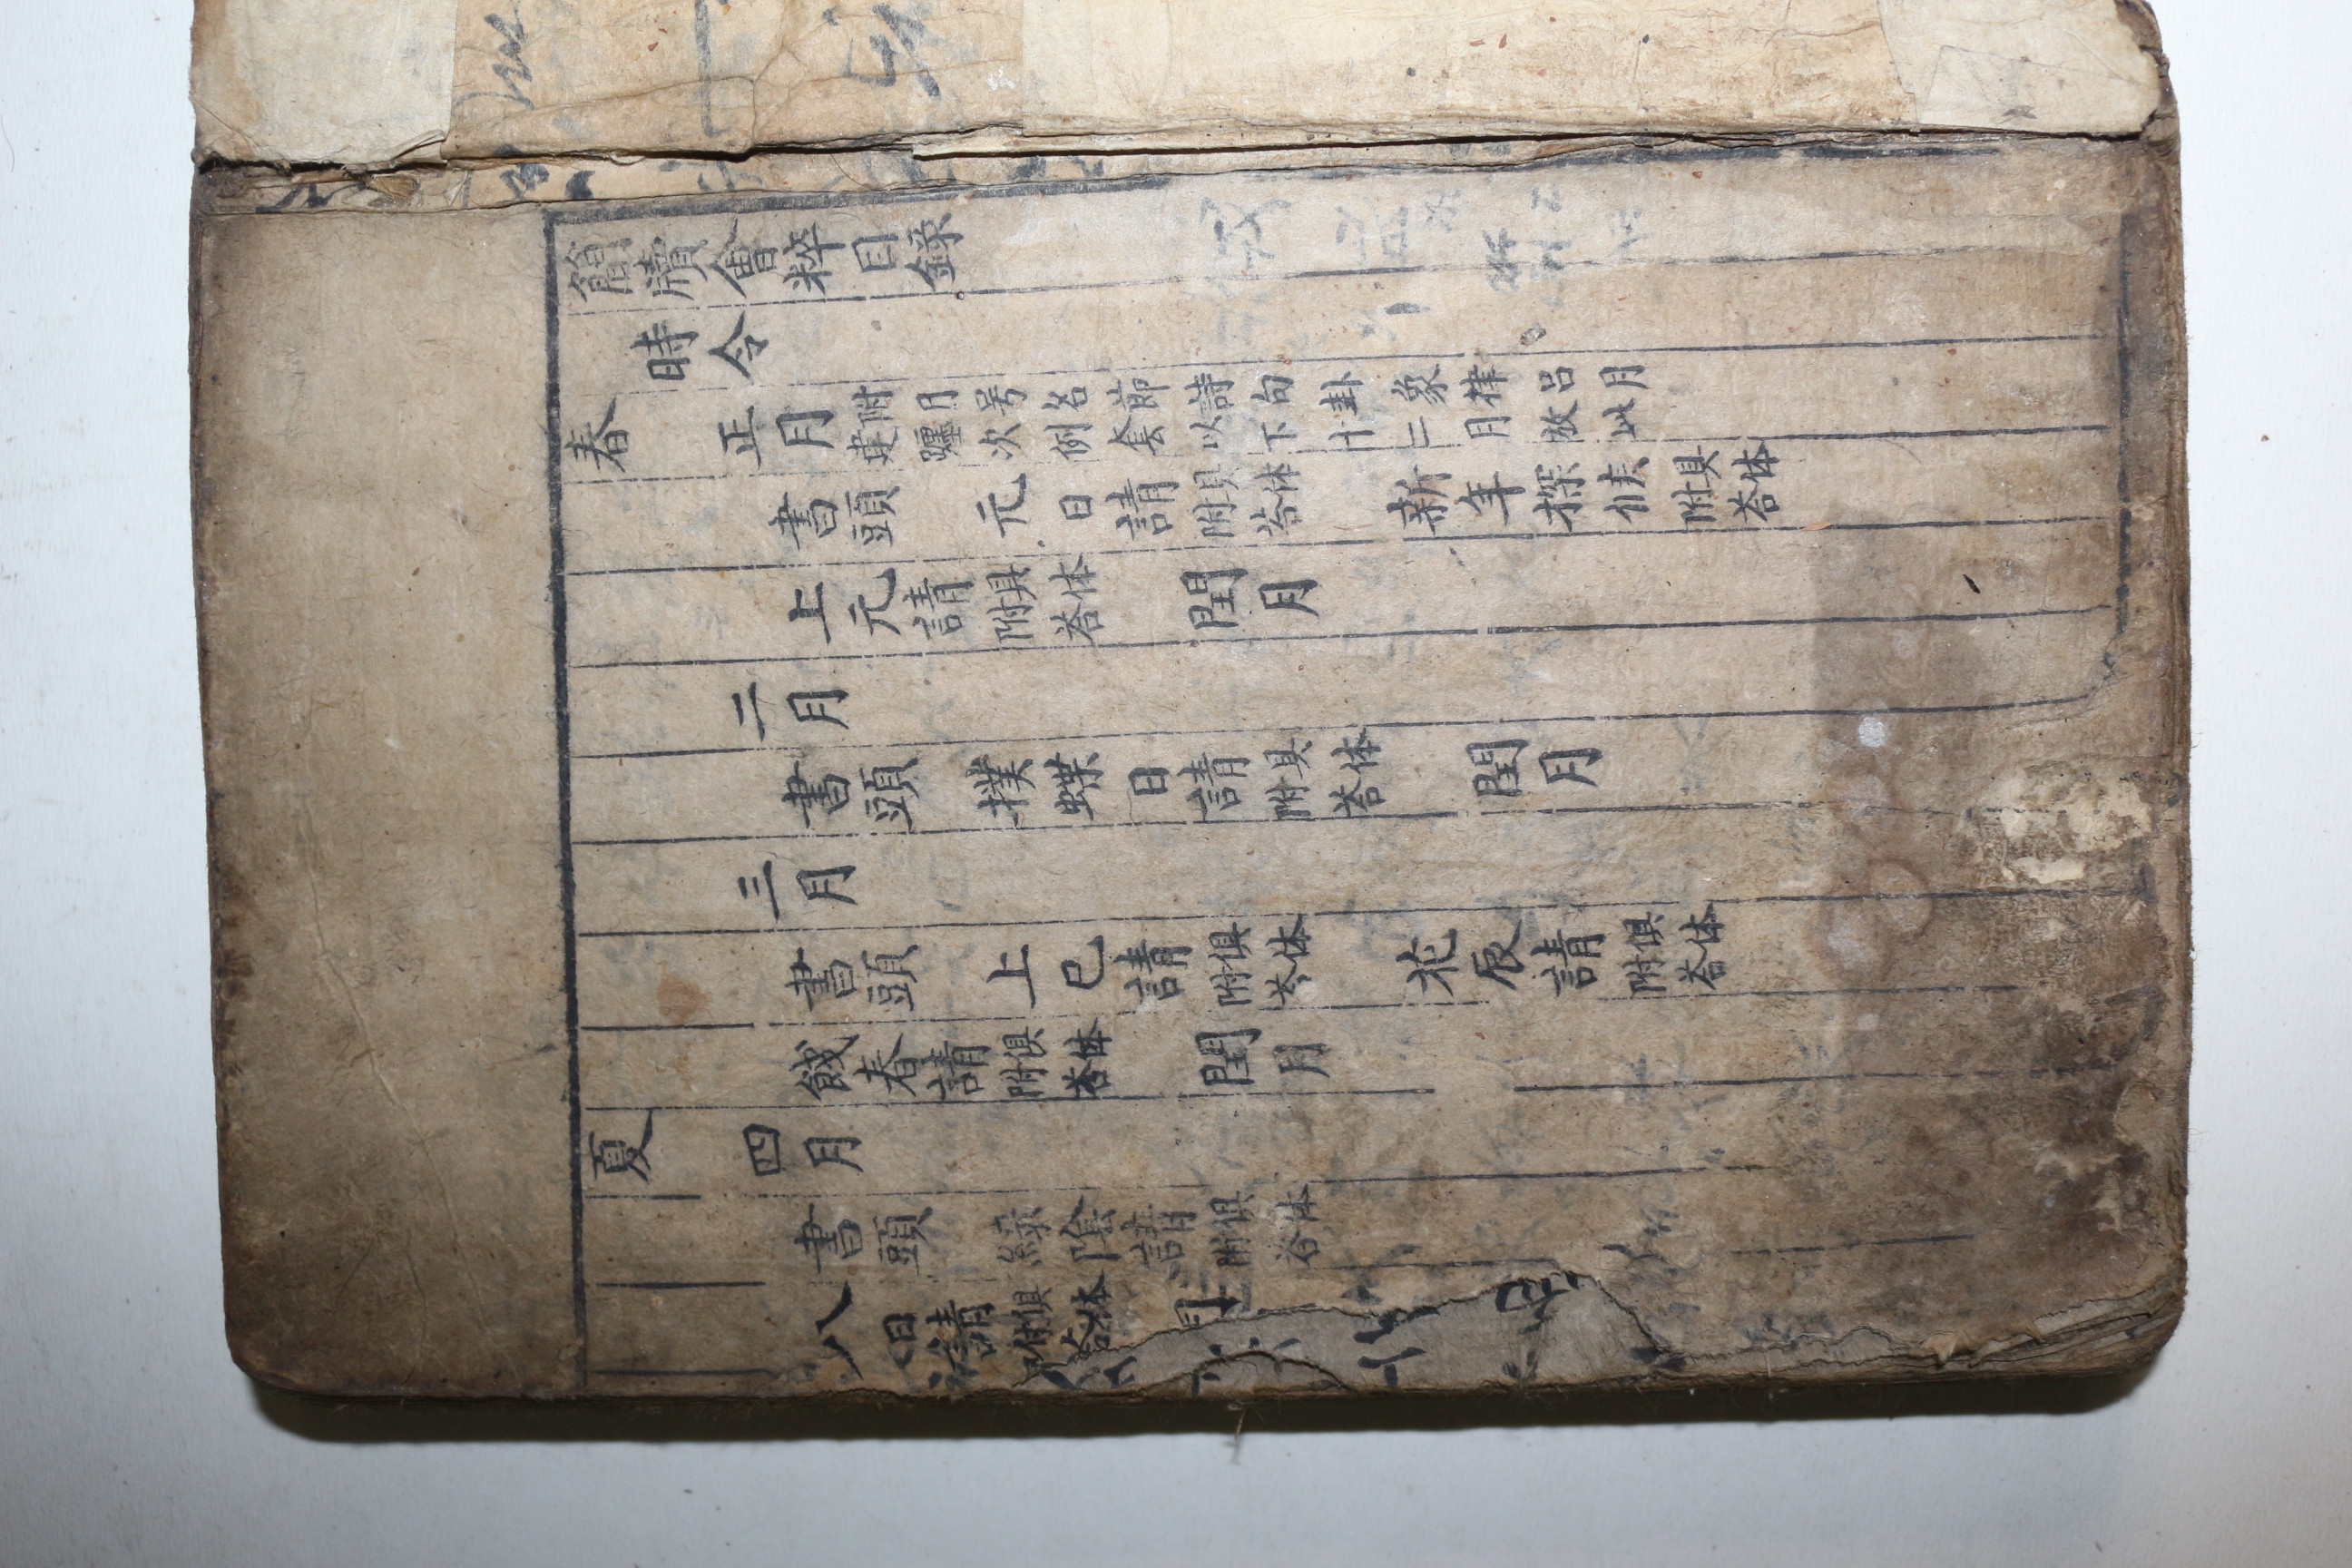 簡牘會粹目錄
時令
春 正月 附月号名節詩句卦象律呂月
建躔次例套以下十二月放此
書頭 元日請 具体附荅 新年探候 具体附荅
上元請 具体附荅 閏月
二月
書頭 撲蝶日請 具体附荅 閏月
三月
書頭 上巳請 俱体附荅 花辰請 俱体附荅
餞春請 俱体附荅 閏月
夏 四月
書頭 綠陰請 俱体附荅
八日請 俱体附荅 月